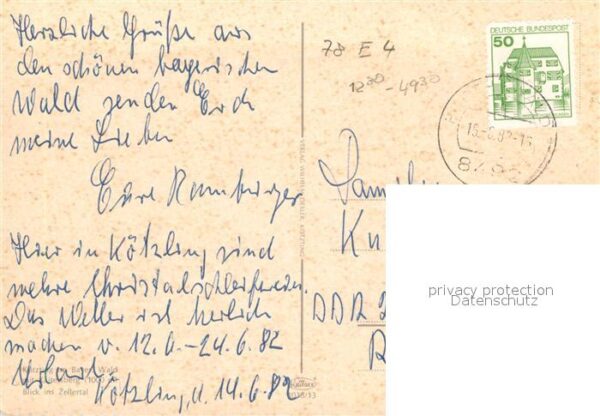 Herzliche Grüße aus
den schönen bayerischen
Wald senden Euch
meine Lieben
Eure
Hier in Kötzting sind
mehre Christalschleifereien.
Das Wetter ist herlich
machen v. 12.6.-24.6.82
Urlaub
Kötzting, d. 14.6.82
Bayer. Wald
Blick ins Zellertal
78 E 4
1230-4930
DEUTSCHE BUNDESPOST
50
Famil
DDR
privacy protection
Datenschutz